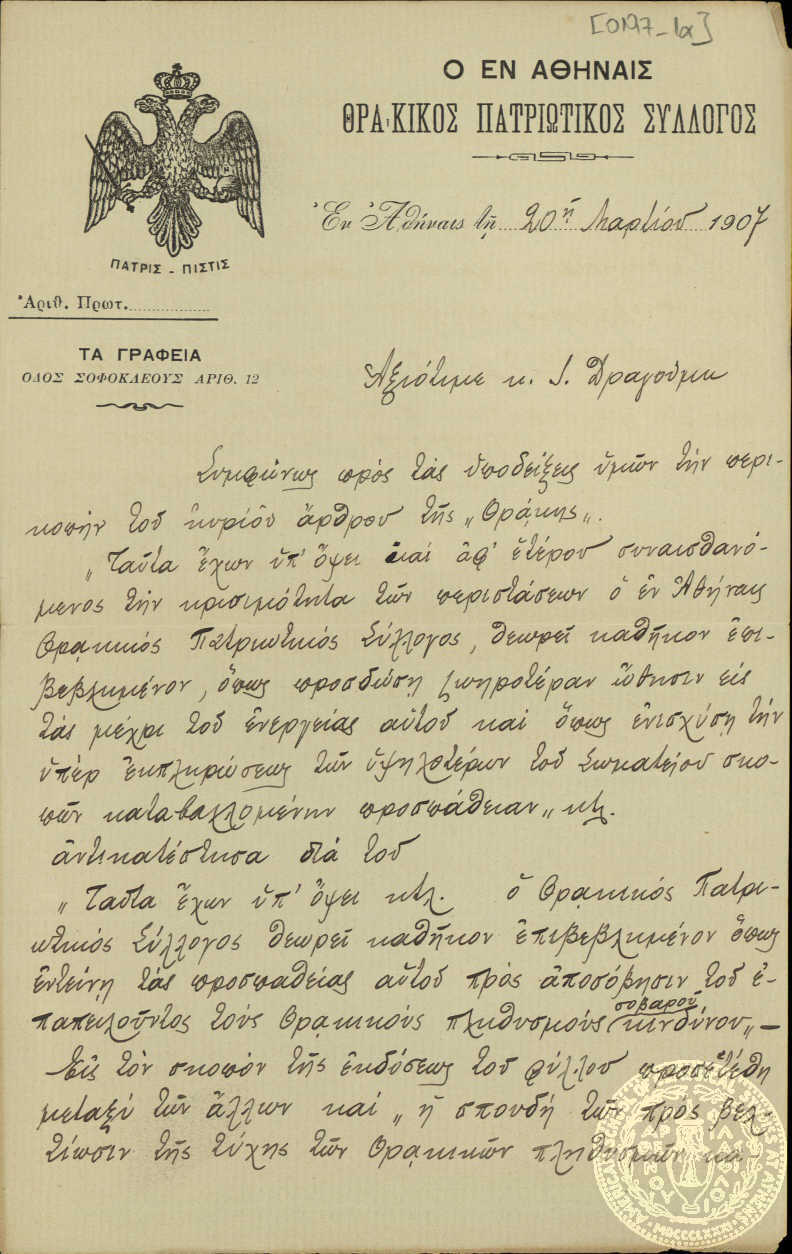 [0197-1α]
Ο ΕΝ ΑΘΗΝΑΙΣ
ΘΡΑ·ΚΙΚΟΣ ΠΑΤΡΙΩΤΙΚΟΣ ΣΥΛΛΟΓΟΣ
Ἐν Ἀθήναις τῇ 20ῇ Μαρτίου 1907
ΠΑΤΡΙΣ - ΠΙΣΤΙΣ
Ἀριθ. Πρωτ.
ΤΑ ΓΡΑΦΕΙΑ
ΟΔΟΣ ΣΟΦΟΚΛΕΟΥΣ ΑΡΙΘ. 12
Ἀξιότιμε κ. Ι. Δραγούμη
Συμφώνως πρὸς τὰς ὑποδείξεις ὑμῶν τὴν περι-
κοπὴν τοῦ κυρίου ἄρθρου τῆς „Θρᾴκης„.
„Ταῦτα ἔχων ὑπ' ὄψει καὶ ἀφ' ἑτέρου συναισθανό-
μενος τὴν κρισιμότητα τῶν περιστάσεων ὁ ἐν Ἀθήναις
Θρᾳκικὸς Πατριωτικὸς Σύλλογος, θεωρεῖ καθῆκον ἐπι-
βεβλημένον, ὅπως προσδώσῃ ζωηροτέραν ὤθησιν εἰς
τὰς μέχρι τοῦδ ἐνεργείας αὐτοῦ καὶ ὅπως ἐνισχύσῃ τὴν
ὑπὲρ ἐκπληρώσεως τῶν ὑψηλοτέρων τοῦ Σωματείου σκο-
πῶν καταβαλλομένην προσπάθειαν„ κτλ.
ἀντικατέστησα διὰ τοῦ
„Ταῦτα ἔχων ὑπ' ὄψει κτλ. ὁ Θρᾳκικὸς Πατρι-
ωτικὸς Σύλλογος θεωρεῖ καθῆκον ἐπιβεβλημένον ὅπως
ἐντείνῃ τὰς προσπαθείας αὐτοῦ πρὸς ἀποσόβησιν τοῦ ἐ-
παπειλοῦντος τοὺς Θρᾳκικοὺς πληθυσμοὺς σοβαροῦ κινδύνου„—
Εἰς τὸν σκοπὸν τῆς ἐκδόσεως τοῦ φύλλου προσετέθη
μεταξὺ τῶν ἄλλων καὶ „ἡ σπουδὴ τῶν πρὸς βελ-
τίωσιν τῆς τύχης τῶν Θρᾳκικῶν πληθυσμῶν κα-